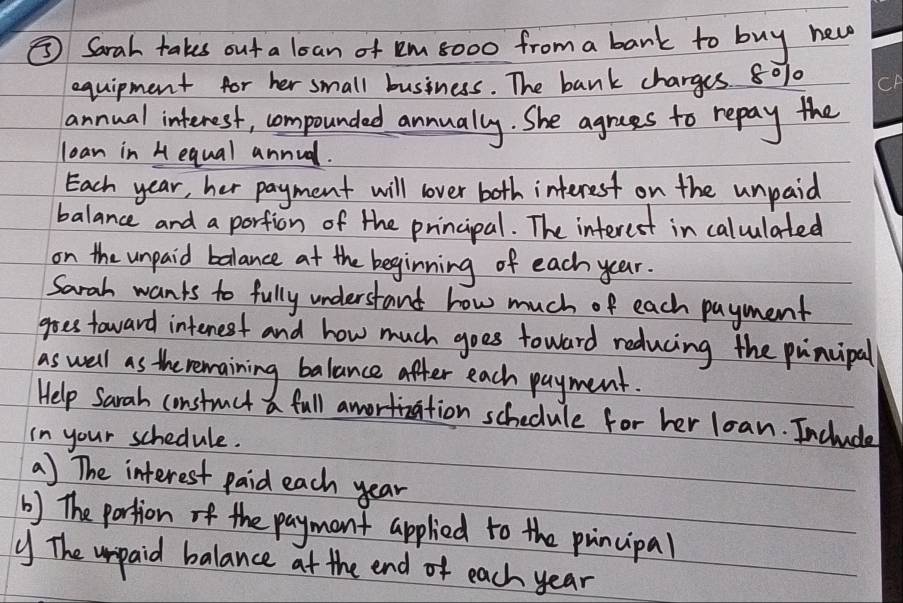 ③ Sarah takes out a loan of RM 8000 from a bank to buy new
equipment for her small business. The bank charges 8%
annual interest, compounded annualy. She agrees to repay the
loan in 4 equal annual.
Each year, her payment will cover both interest on the unpaid
balance and a portion of the principal. The interest in calculated
on the unpaid balance at the beginning of each year.
Sarah wants to fully understand how much of each payment
goes toward interest and how much goes toward reducing the principal
as well as the remaining balance after each payment.
Help Sarah construct a full amortization schedule for her loan. Include
in your schedule.
a) The interest paid each year
b) The portion of the payment applied to the principal
c) The unpaid balance at the end of each year
CA